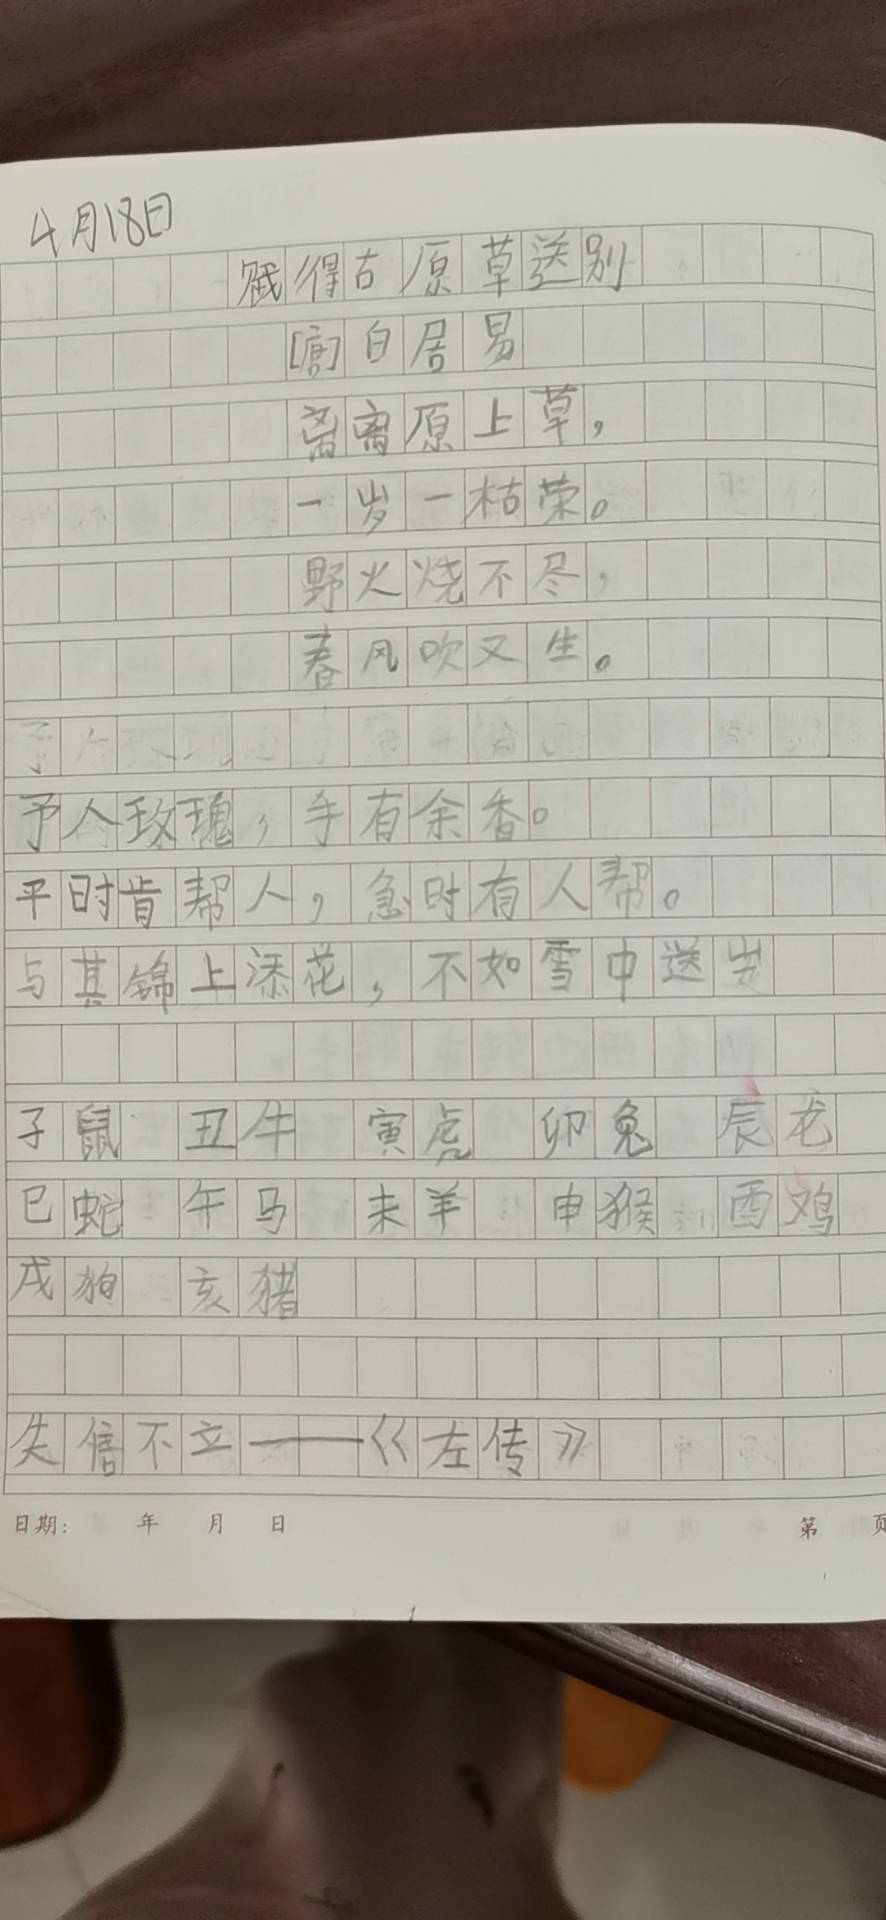 4月18日
赋得古原草送别
[唐]白居易
离离原上草，
一岁一枯荣。
野火烧不尽，
春风吹又生。
予人玫瑰，手有余香。
平时肯帮人，急时有人帮。
与其锦上添花，不如雪中送岁
子鼠 丑牛 寅虎 卯兔 辰龙
巳蛇 午马 未羊 申猴 酉鸡
戌狗 亥猪
失信不立——《左传》
日期： 年 月 日 第 页